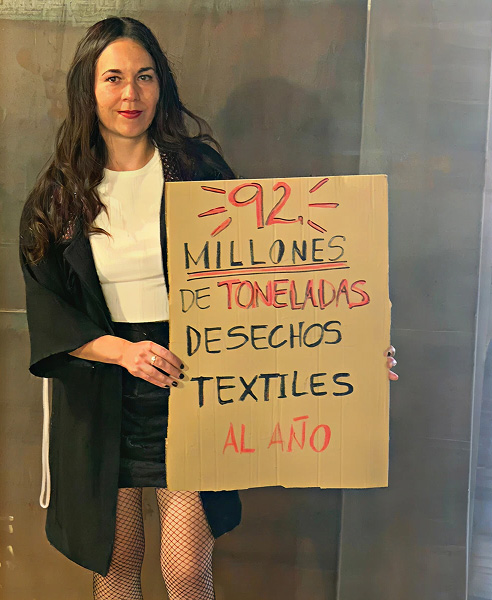 92.
MILLONES
DE TONELADAS
DESECHOS
TEXTILES
AL AÑO